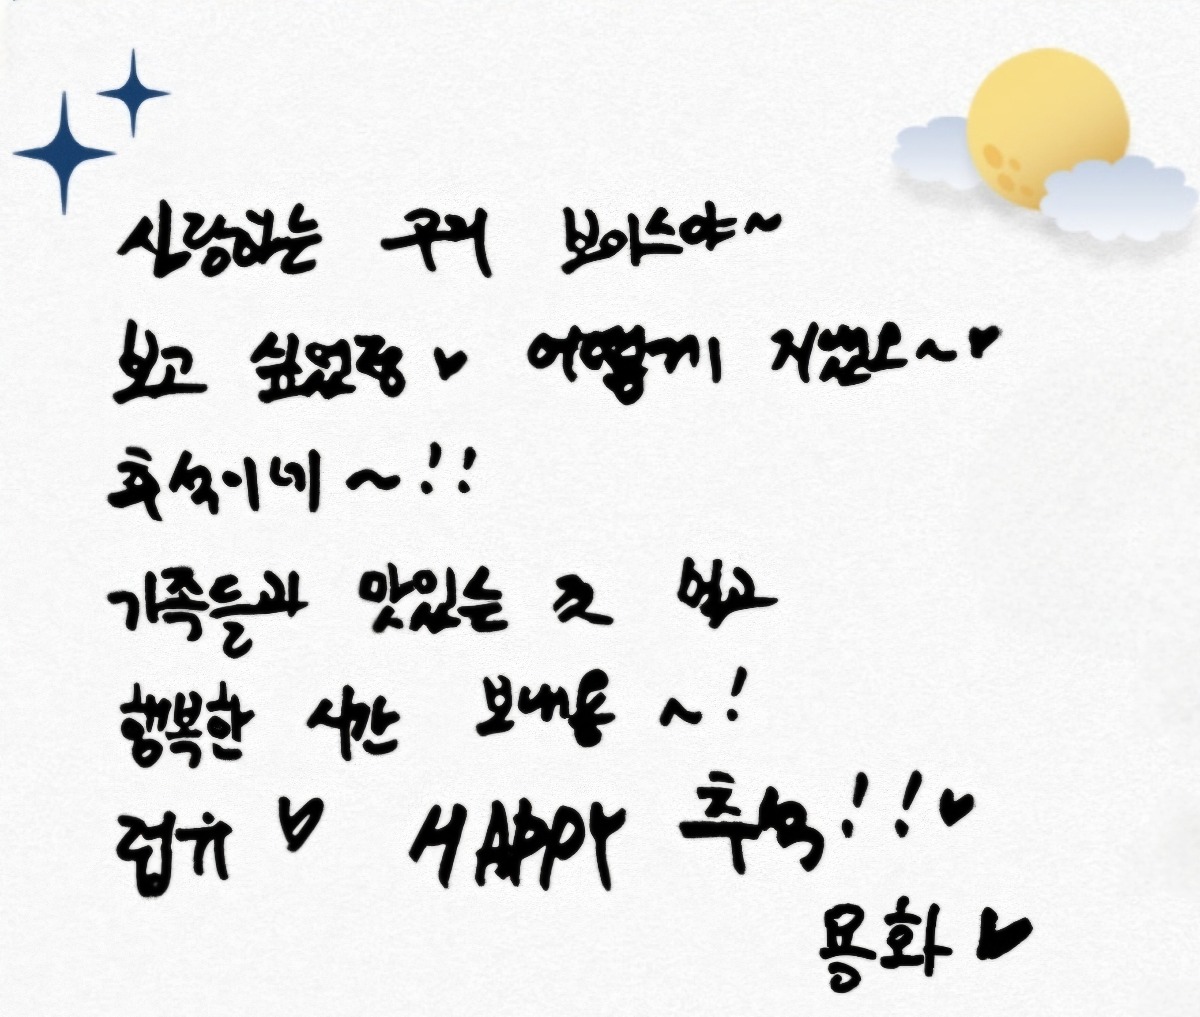 사랑하는 우리 보이스야~
보고 싶었당 ♥ 어떻게 지냈오~♥
추석이네~!!
가족들과 맛있는 것 먹고
행복한 시간 보내용~!
럽유 ♥ HAPPY 추석!!♥
용화 ♥